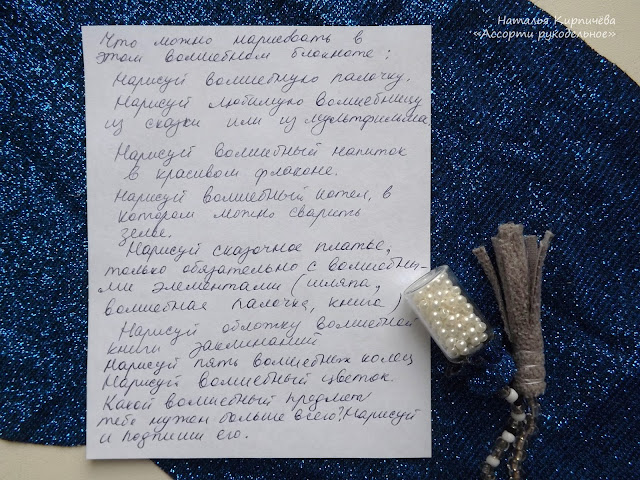 Наталья Кирпичёва
«Ассорти рукодельное»
Что можно нарисовать в
этом волшебном блокноте:
Нарисуй волшебную палочку.
Нарисуй любимую волшебницу
из сказки или из мультфильма
Нарисуй волшебный напиток
в красивом флаконе.
Нарисуй волшебный котел, в
котором можно сварить
зелье.
Нарисуй сказочное платье,
только обязательно с волшебны-
ми элементами (шляпа,
волшебная палочка, книга)
Нарисуй обложку волшебной
книги заклинаний
Нарисуй пять волшебных колец
Нарисуй волшебный цветок.
Какой волшебный предмет
тебе нужен больше всего? Нарисуй
и подпиши его.